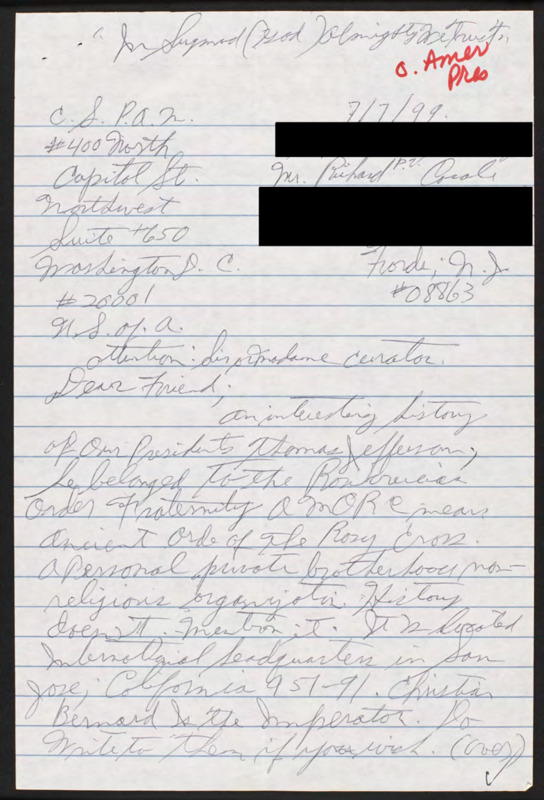 "In Sugmad (God) Almighty We Trust"
O. Amer
Pres
C. S. P. A. N.
7/7/99.
#400 North
Capitol St.
Mr. Richard P.V. Casale
Northwest
Suite #650
Washington D. C.
Fords, N. J.
#20001
#08863
U. S. of. A.
Attention: Sir or Madame curator.
Dear Friend;
an interesting history
of Our Presidents Thomas Jefferson,
he belonged to the Rosicrucian
Order Fraternity A M O R C means
Ancient Orde of the Rosy Cross.
a personal private brotherhood, non-
religious organization. History
doesn't mention it. It is located
International headquarters in San
Jose, California 951-91. Christian
Bernard Is the Imperator. Do
Write to them if you wish. (over)